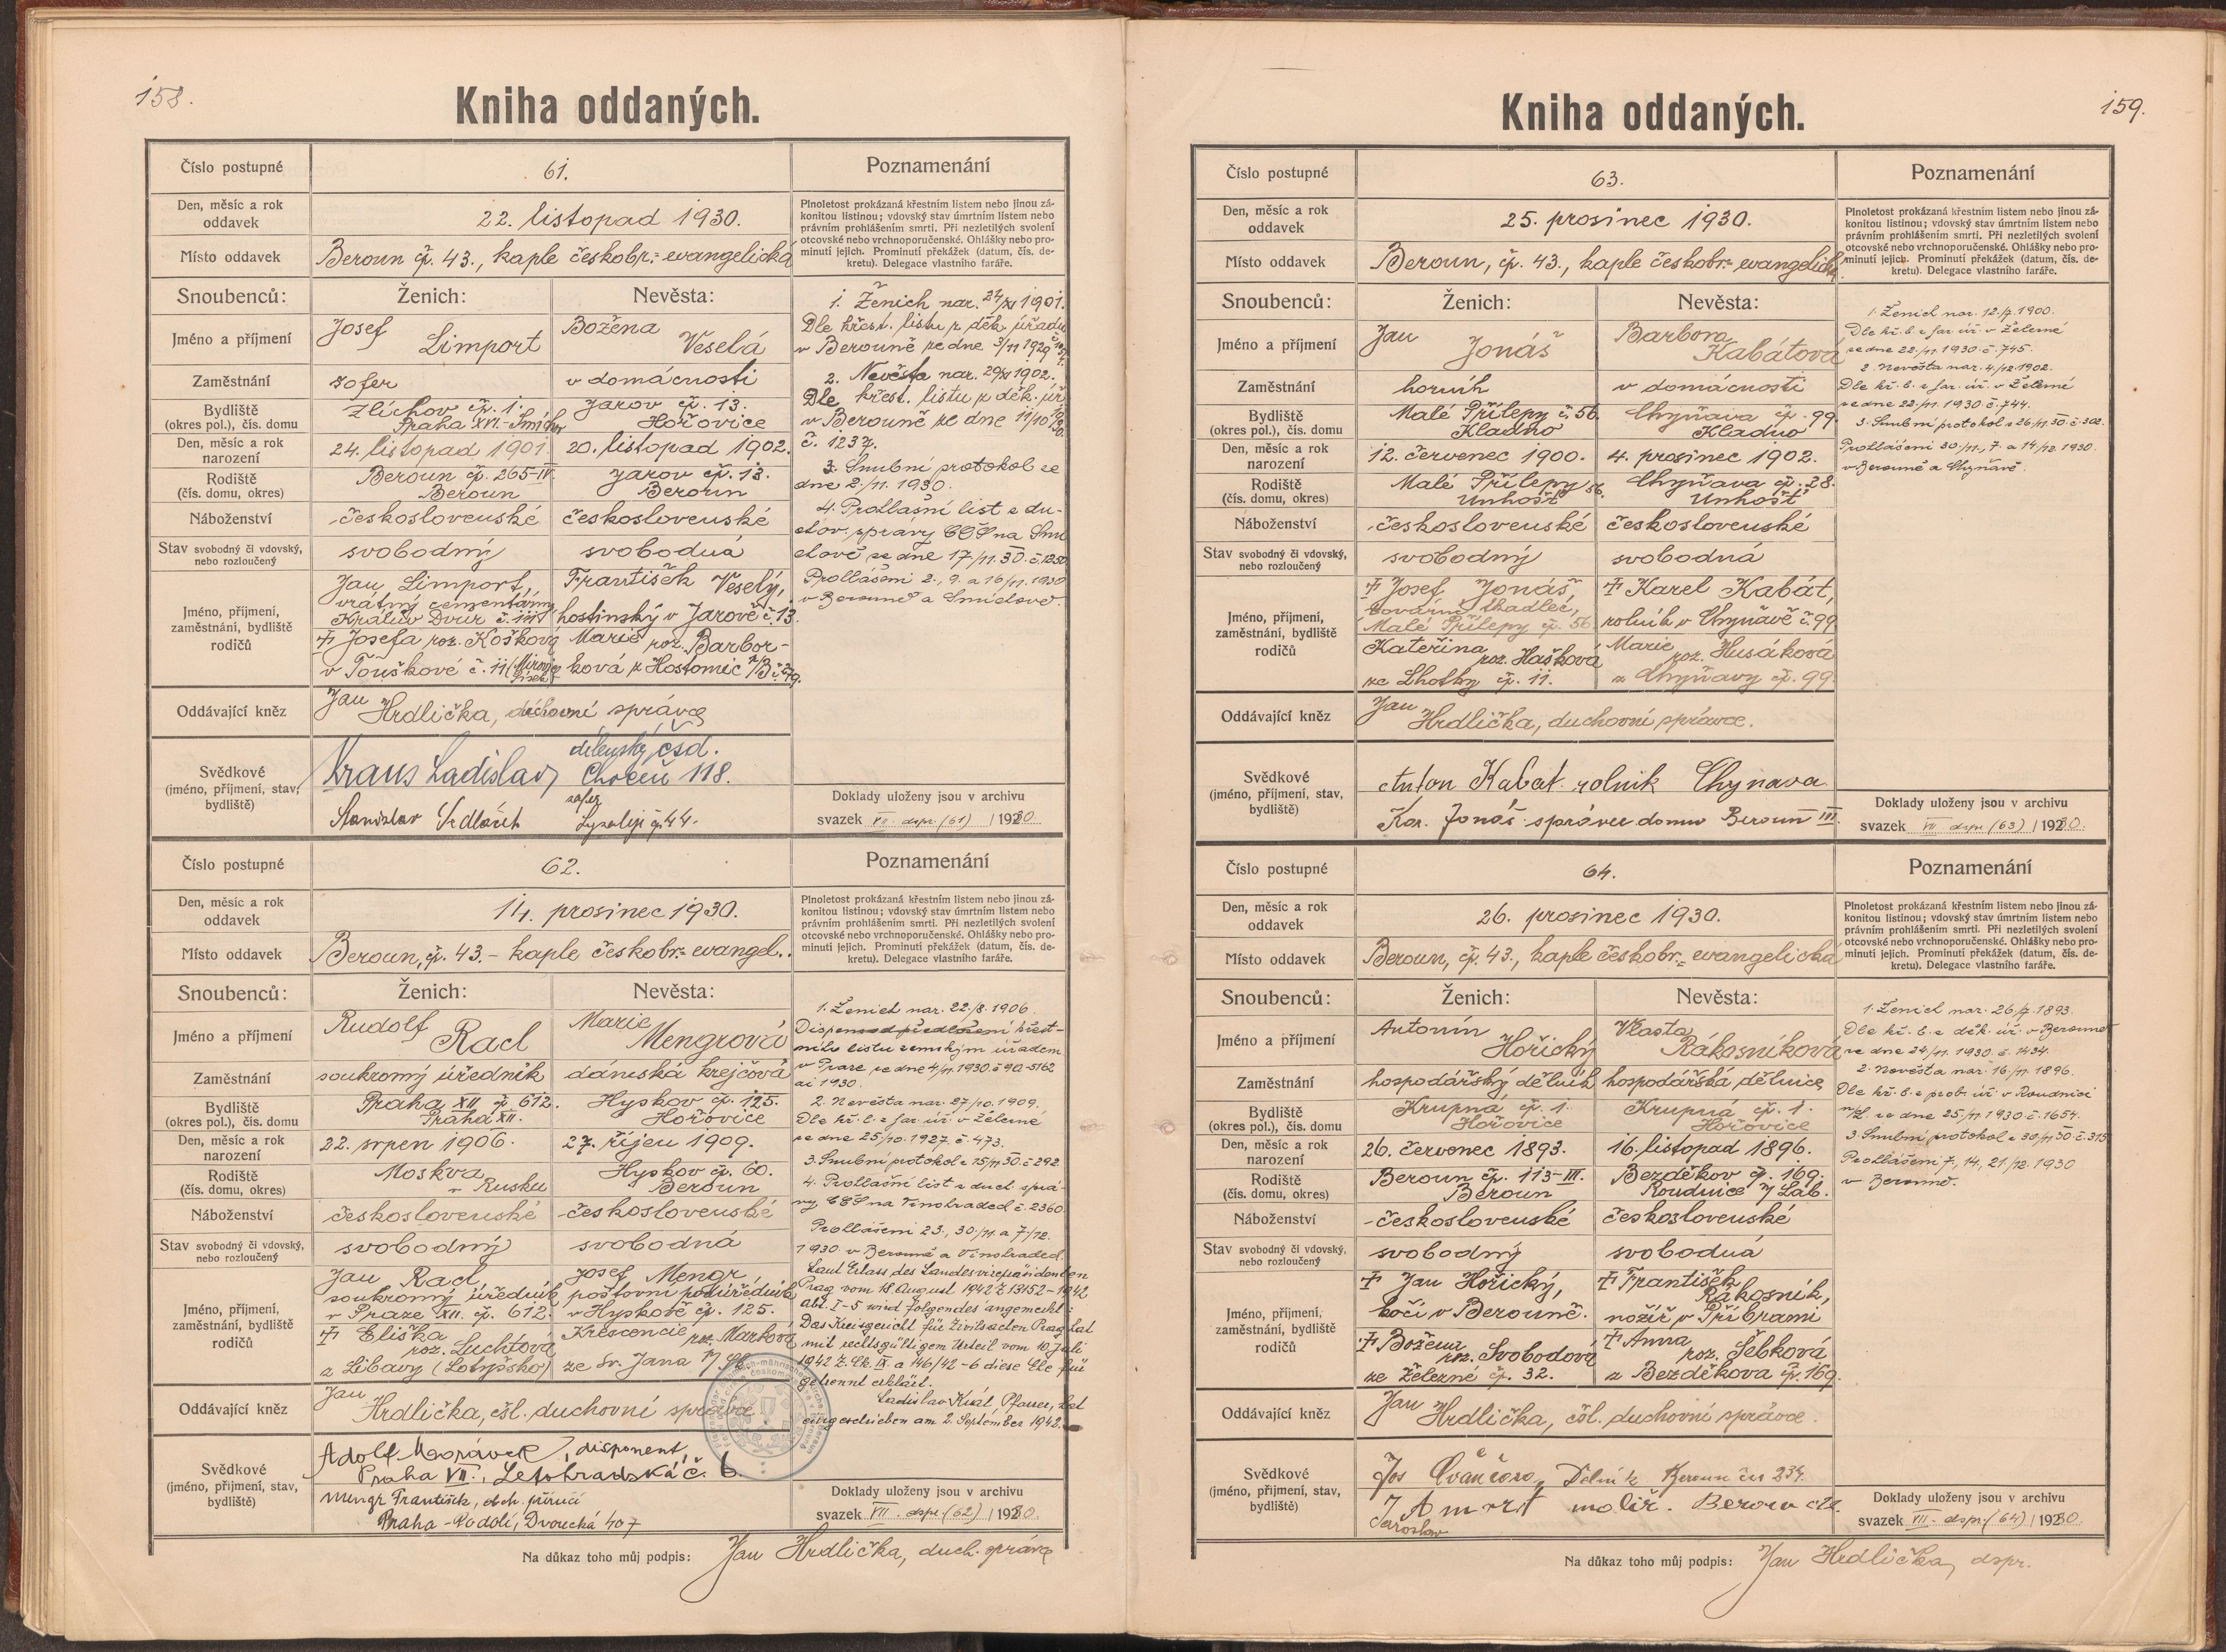 158.
Kniha oddaných.
Číslo postupné
61.
Poznamenání
Den, měsíc a rok
oddavek
22. listopad 1930.
Plnoletost prokázaná křestním listem nebo jinou zá-
konitou listinou; vdovský stav úmrtním listem nebo
právním prohlášením smrti. Při nezletilých svolení
otcovské nebo vrchnoporučenské. Ohlášky nebo pro-
minutí jejich. Prominutí překážek (datum, čís. de-
kretu). Delegace vlastního faráře.
Místo oddavek
Beroun čp. 43., kaple českobr.=evangelická
Snoubenců:
Ženich:
Nevěsta:
Jméno a příjmení
Josef
Limport
Božena
Veselá
Zaměstnání
šofer
v domácnosti
Bydliště
(okres pol.), čís. domu
Zlíchov čp. 1.
Praha XVI.-Smíchov
Jarov čp. 13.
Hořovice
Den, měsíc a rok
narození
24. listopad 1901.
20. listopad 1902.
Rodiště
(čís. domu, okres)
Beroun čp. 265-IV.
Beroun
Jarov čp. 13.
Beroun
Náboženství
československé
československé
Stav svobodný či vdovský,
nebo rozloučený
svobodný
svobodná
Jméno, příjmení,
zaměstnání, bydliště
rodičů
Jan Limport,
vrátný cementárny
Králův Dvůr č. 111
† Josefa roz. Košková
v Touškově č. 11
František Veselý,
hostinský v Jarově č. 13.
Marie roz. Barbor-
ková z Hostomic
Oddávající kněz
Jan
Hrdlička, duchovní správce
Svědkové
(jméno, příjmení, stav,
bydliště)
Kraus Ladislav
dílenský čsd.
Choceň 118.
Stanislav Sedláček
šofer
Lysoleje čp 44.
1. Ženich nar. 24/XI 1901.
Dle křest. listu z děk. úřadu
v Berouně ze dne 3/11 1929
2. Nevěsta nar. 20/XI 1902.
Dle křest. listu z děk. úř.
v Berouně ze dne 11/10
č. 1237.
3. Snubní protokol ze
dne 2./11. 1930.
4. Prohlašní list z du-
chov. správy CČS na Smí
chově ze dne 17/11. 30. č. 1250
Prohlášeni 2., 9. a 16/11. 1930
v Berouně a Smíchově.
Doklady uloženy jsou v archivu
svazek VII. dspr. (61) / 1930
Číslo postupné
62.
Poznamenání
Den, měsíc a rok
oddavek
14. prosinec 1930.
Plnoletost prokázaná křestním listem nebo jinou zá-
konitou listinou; vdovský stav úmrtním listem nebo
právním prohlášením smrti. Při nezletilých svolení
otcovské nebo vrchnoporučenské. Ohlášky nebo pro-
minutí jejich. Prominutí překážek (datum, čís. de-
kretu). Delegace vlastního faráře.
Místo oddavek
Beroun, čp. 43.- kaple českobr.=evangel.
Snoubenců:
Ženich:
Nevěsta:
Jméno a příjmení
Rudolf
Racl
Marie
Mengrová
Zaměstnání
soukromý úředník
dámská krejčová
Bydliště
(okres pol.), čís. domu
Praha XII čp 612.
Praha XII.
Hyskov čp. 125.
Hořovice
Den, měsíc a rok
narození
22. srpen 1906.
27. říjen 1909.
Rodiště
(čís. domu, okres)
Moskva
v Rusku
Hyskov čp. 60.
Beroun
Náboženství
československé
československé
Stav svobodný či vdovský,
nebo rozloučený
svobodný
svobodná
Jméno, příjmení,
zaměstnání, bydliště
rodičů
Jan Racl,
soukromý úředník
v Praze XII. čp. 612.
† Eliška
roz. Luchtová
z Libavy (Lotyšsko)
Josef Mengr
poštovní podúředník
v Hyskově čp. 125.
Krescencie roz. Marková
ze Sv. Jana
Oddávající kněz
Jan
Hrdlička, čsl. duchovní správce
Svědkové
(jméno, příjmení, stav,
bydliště)
Adolf Morávek, disponent,
Praha VII., Letohradská č. 6
Mengr František, obch. příručí
Praha-Podolí, Dvorecká 407
1. Ženich nar. 22./8. 1906.
Dispens od předložení křest-
ního listu zemským úřadem
v Praze ze dne 4/11. 1930. č 9a-5162
ai 1930.
2. Nevěsta nar. 27/10. 1909.
Dle kř. l. z far. úř. v Železné
ze dne 25/10. 1927. č. 473.
3. Snubní protokol z 15/11 30. č 292.
4. Prohlašní list z duch. sprá-
vy CČS na Vinohradech č. 2360.
Prohlášeni 23., 30/11. a 7/12.
1930. v Berouně a Vinohradech.
Laut Erlass des Landesvizepräsidenten
Prag vom 18. August 1942 Z 13152-1942
abt. I-5 wird folgendes angemerkt:
Das Kreisgericht für Zivilsachen Prag hat
mit rechtsgültigem Urteil vom 10. Juli
1942 Z. Ck. IX. a 146/42-6 diese Ehe für
getrennt erklärt.
Ladislav Král, Pfarrer, hat
eingeschrieben am 2. September 1942.
Doklady uloženy jsou v archivu
svazek VII. dspr. (62) / 1930.
Na důkaz toho můj podpis: Jan Hrdlička, duch. správce
159.
Kniha oddaných.
Číslo postupné
63.
Poznamenání
Den, měsíc a rok
oddavek
25. prosinec 1930.
Plnoletost prokázaná křestním listem nebo jinou zá-
konitou listinou; vdovský stav úmrtním listem nebo
právním prohlášením smrti. Při nezletilých svolení
otcovské nebo vrchnoporučenské. Ohlášky nebo pro-
minutí jejich. Prominutí překážek (datum, čís. de-
kretu). Delegace vlastního faráře.
Místo oddavek
Beroun, čp. 43., kaple českobr.=evangelická
Snoubenců:
Ženich:
Nevěsta:
Jméno a příjmení
Jan
Jonáš
Barbora
Kabátová
Zaměstnání
horník
v domácnosti
Bydliště
(okres pol.), čís. domu
Malé Přílepy č 56.
Kladno
Chyňava čp. 99.
Kladno
Den, měsíc a rok
narození
12. červenec 1900.
4. prosinec 1902.
Rodiště
(čís. domu, okres)
Malé Přílepy 56.
Unhošť
Chyňava čp. 28.
Unhošť
Náboženství
československé
československé
Stav svobodný či vdovský,
nebo rozloučený
svobodný
svobodná
Jméno, příjmení,
zaměstnání, bydliště
rodičů
† Josef Jonáš,
tovární tkadlec,
Malé Přílepy čp. 56
Kateřina
roz. Hašková
ze Lhotky čp. 11.
† Karel Kabát,
rolník v Chyňavě č. 99
Marie
roz. Husáková
z Chyňavy čp. 99.
Oddávající kněz
Jan
Hrdlička, duchovní správce.
Svědkové
(jméno, příjmení, stav,
bydliště)
Anton Kabat rolnik Chynava
Kar. Jonáš správce domu Beroun III.
1. Ženich nar. 12./7. 1900.
Dle kř. l. z far. úř. v Železné
ze dne 22./11. 1930. č. 745.
2. Nevěsta nar. 4./12. 1902.
Dle kř. l. z far. úř. v Železné
ze dne 22./11. 1930. č. 744.
3. Snubní protokol z 26/11. 30. č. 302.
Prohlášeni 30/11., 7. a 14/12. 1930.
v Berouně a Chyňavě.
Doklady uloženy jsou v archivu
svazek VII dspr. (63) / 1930.
Číslo postupné
64.
Poznamenání
Den, měsíc a rok
oddavek
26. prosinec 1930.
Plnoletost prokázaná křestním listem nebo jinou zá-
konitou listinou; vdovský stav úmrtním listem nebo
právním prohlášením smrti. Při nezletilých svolení
otcovské nebo vrchnoporučenské. Ohlášky nebo pro-
minutí jejich. Prominutí překážek (datum, čís. de-
kretu). Delegace vlastního faráře.
Místo oddavek
Beroun, čp. 43., kaple českobr.=evangelická
Snoubenců:
Ženich:
Nevěsta:
Jméno a příjmení
Antonín
Hořický
Vlasta
Rákosníková
Zaměstnání
hospodářský dělník
hospodářská dělnice
Bydliště
(okres pol.), čís. domu
Krupná čp. 1.
Hořovice
Krupná čp. 1.
Hořovice
Den, měsíc a rok
narození
26. červenec 1893.
16. listopad 1896.
Rodiště
(čís. domu, okres)
Beroun čp. 113-III.
Beroun
Bezděkov čp. 169.
Roudnice n/ Lab.
Náboženství
československé
československé
Stav svobodný či vdovský,
nebo rozloučený
svobodný
svobodná
Jméno, příjmení,
zaměstnání, bydliště
rodičů
† Jan Hořický,
kočí v Berouně.
† Božena
roz. Svobodová
ze Železné čp. 32.
† František
Rákosník,
nožíř v Příbrami
† Anna
roz. Šebková
z Bezděkova čp. 169.
Oddávající kněz
Jan
Hrdlička, čsl. duchovní správce.
Svědkové
(jméno, příjmení, stav,
bydliště)
Jos Dělník Beroun 234.
Jaroslav malíř. Beroun
1. Ženich nar. 26/7. 1893.
Dle kř. l. z děk. úř. v Berouně
ze dne 24/11. 1930. č. 1434.
2. Nevěsta nar. 16/11. 1896.
Dle kř. l. z prob. úř. v Roudnici
n/L. ze dne 25/11. 1930. č. 1654.
3. Snubní protokol z 30/11 30. č. 315
Prohlášeni 7., 14., 21./12. 1930
v Berouně.
Doklady uloženy jsou v archivu
svazek VII. dspr. (64) / 1930.
Na důkaz toho můj podpis: Jan Hrdlička, dspr.